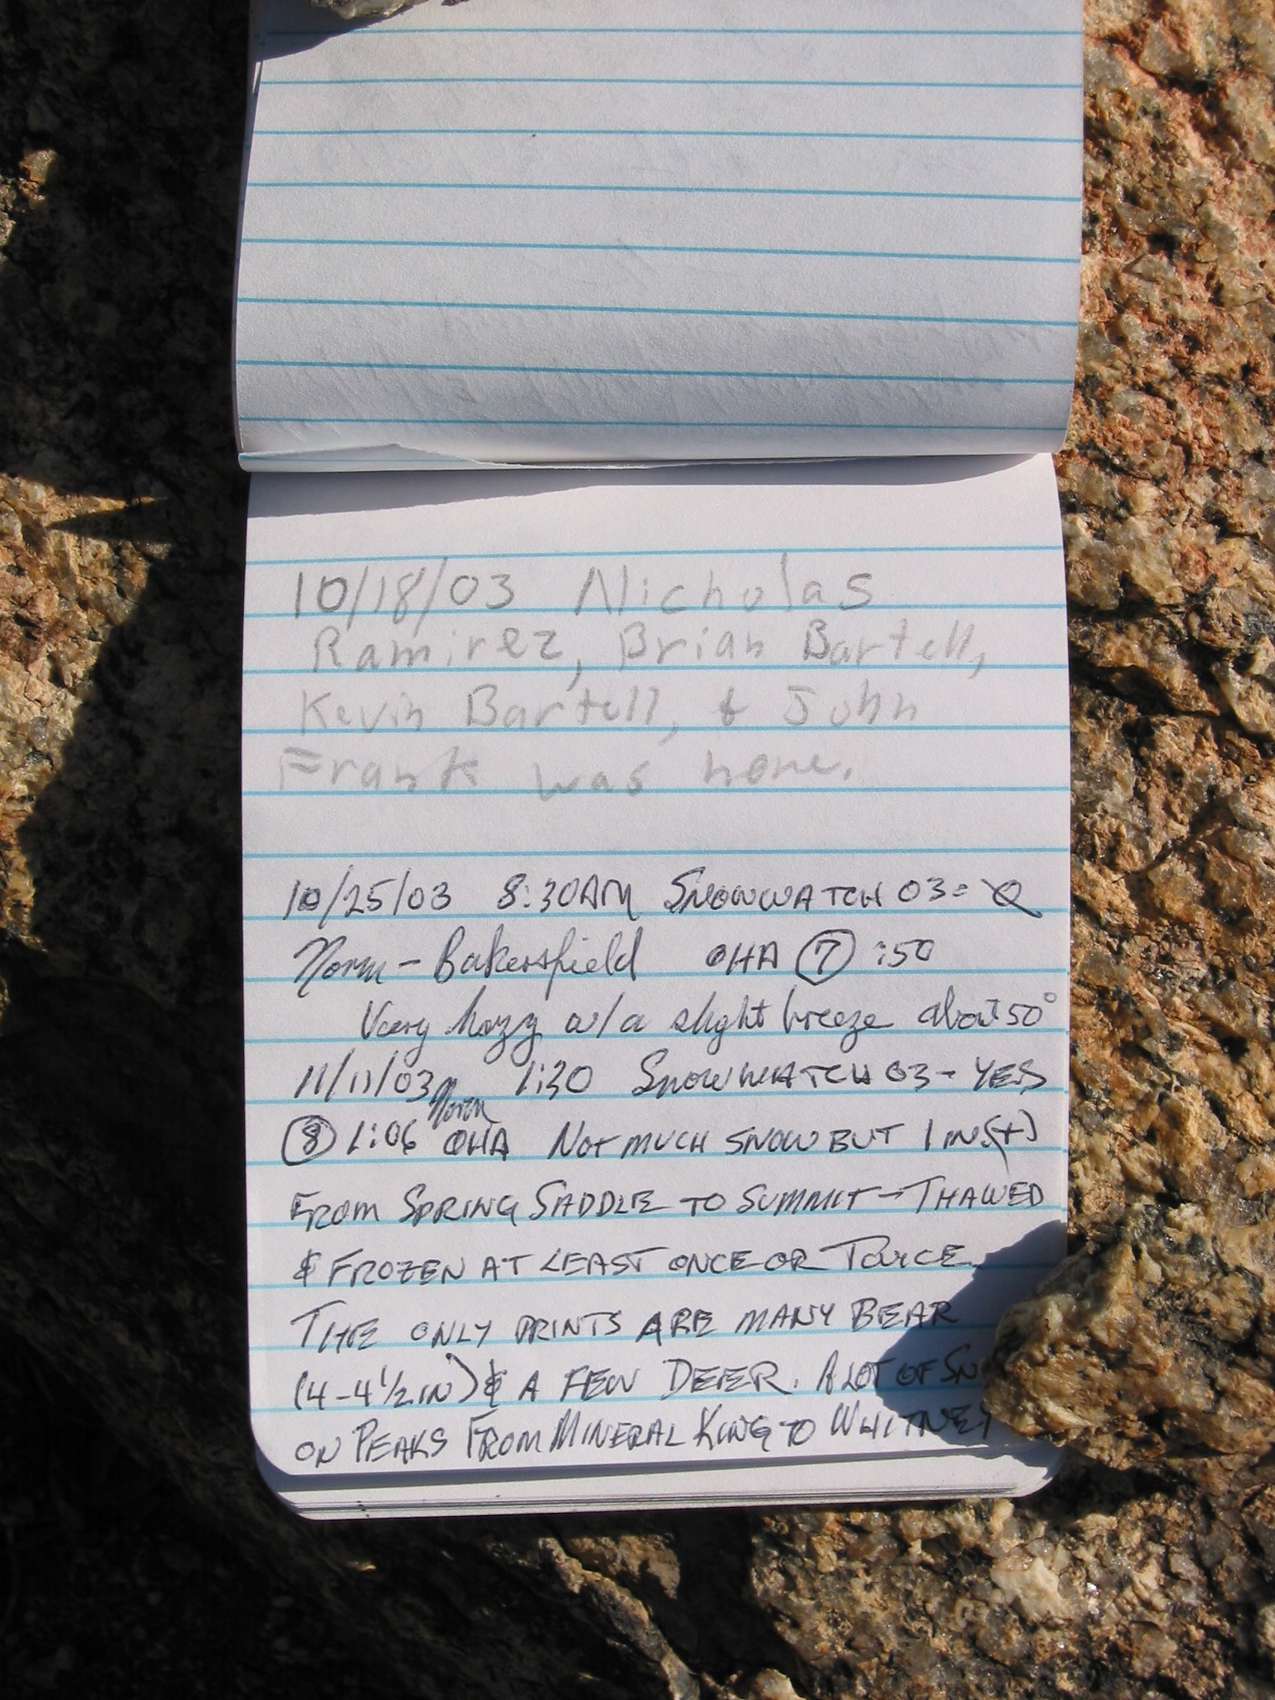 10/18/03 Nicholas
Ramirez, Brian Bartell,
Kevin Bartell, & John
Frank was here.
10/25/03 8:30AM SNOWWATCH 03=
Norm - Bakersfield OHA 7 :50
Very hazy w/a slight breeze about 50°
11/11/03 1:30 SNOWWATCH 03 - YES
Norm
8 1:06 OHA NOT MUCH SNOW BUT 1 IN.(+)
FROM SPRING SADDLE TO SUMMIT - THAWED
& FROZEN AT LEAST ONCE OR TWICE.
THE ONLY PRINTS ARE MANY BEAR
(4-4 1/2 IN) & A FEW DEER. A LOT OF
ON PEAKS FROM MINERAL KING TO WHITNEY